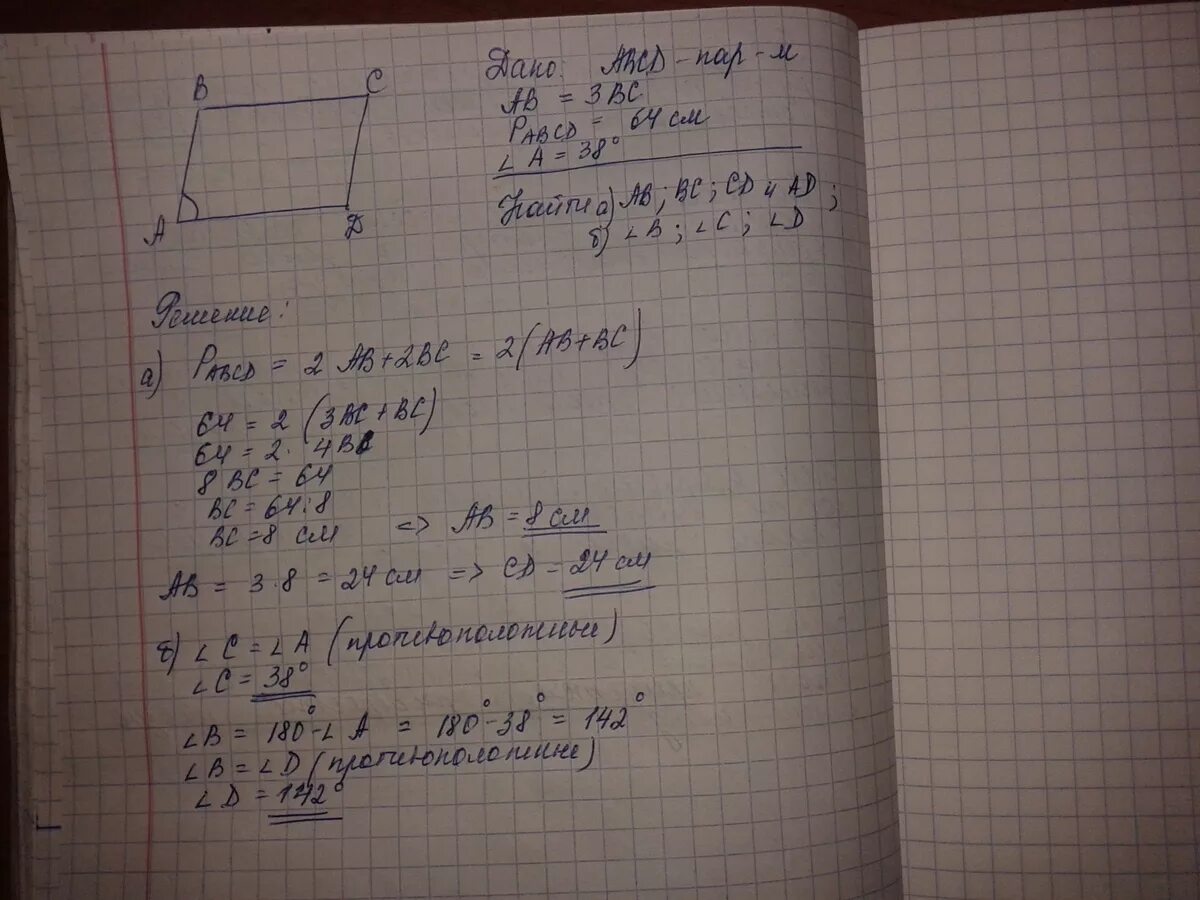 B
C
A
D
Дано: ABCD - пар-м
AB = 3BC
P ABCD = 64 см
∠A = 38°
Найти а) AB; BC; CD и AD;
б) ∠B; ∠C; ∠D
Решение:
а) P ABCD = 2 AB + 2BC = 2(AB + BC)
64 = 2 (3BC + BC)
64 = 2 · 4BC
8 BC = 64
BC = 64 : 8
BC = 8 см => AB = 8 см
AB = 3 · 8 = 24 см => CD = 24 см
б) ∠C = ∠A (противоположные)
∠C = 38°
∠B = 180° - ∠A = 180° - 38° = 142°
∠B = ∠D (противоположные)
∠D = 142°